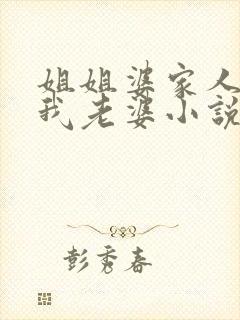 姐姐婆家人
我老婆小說
彭秀春